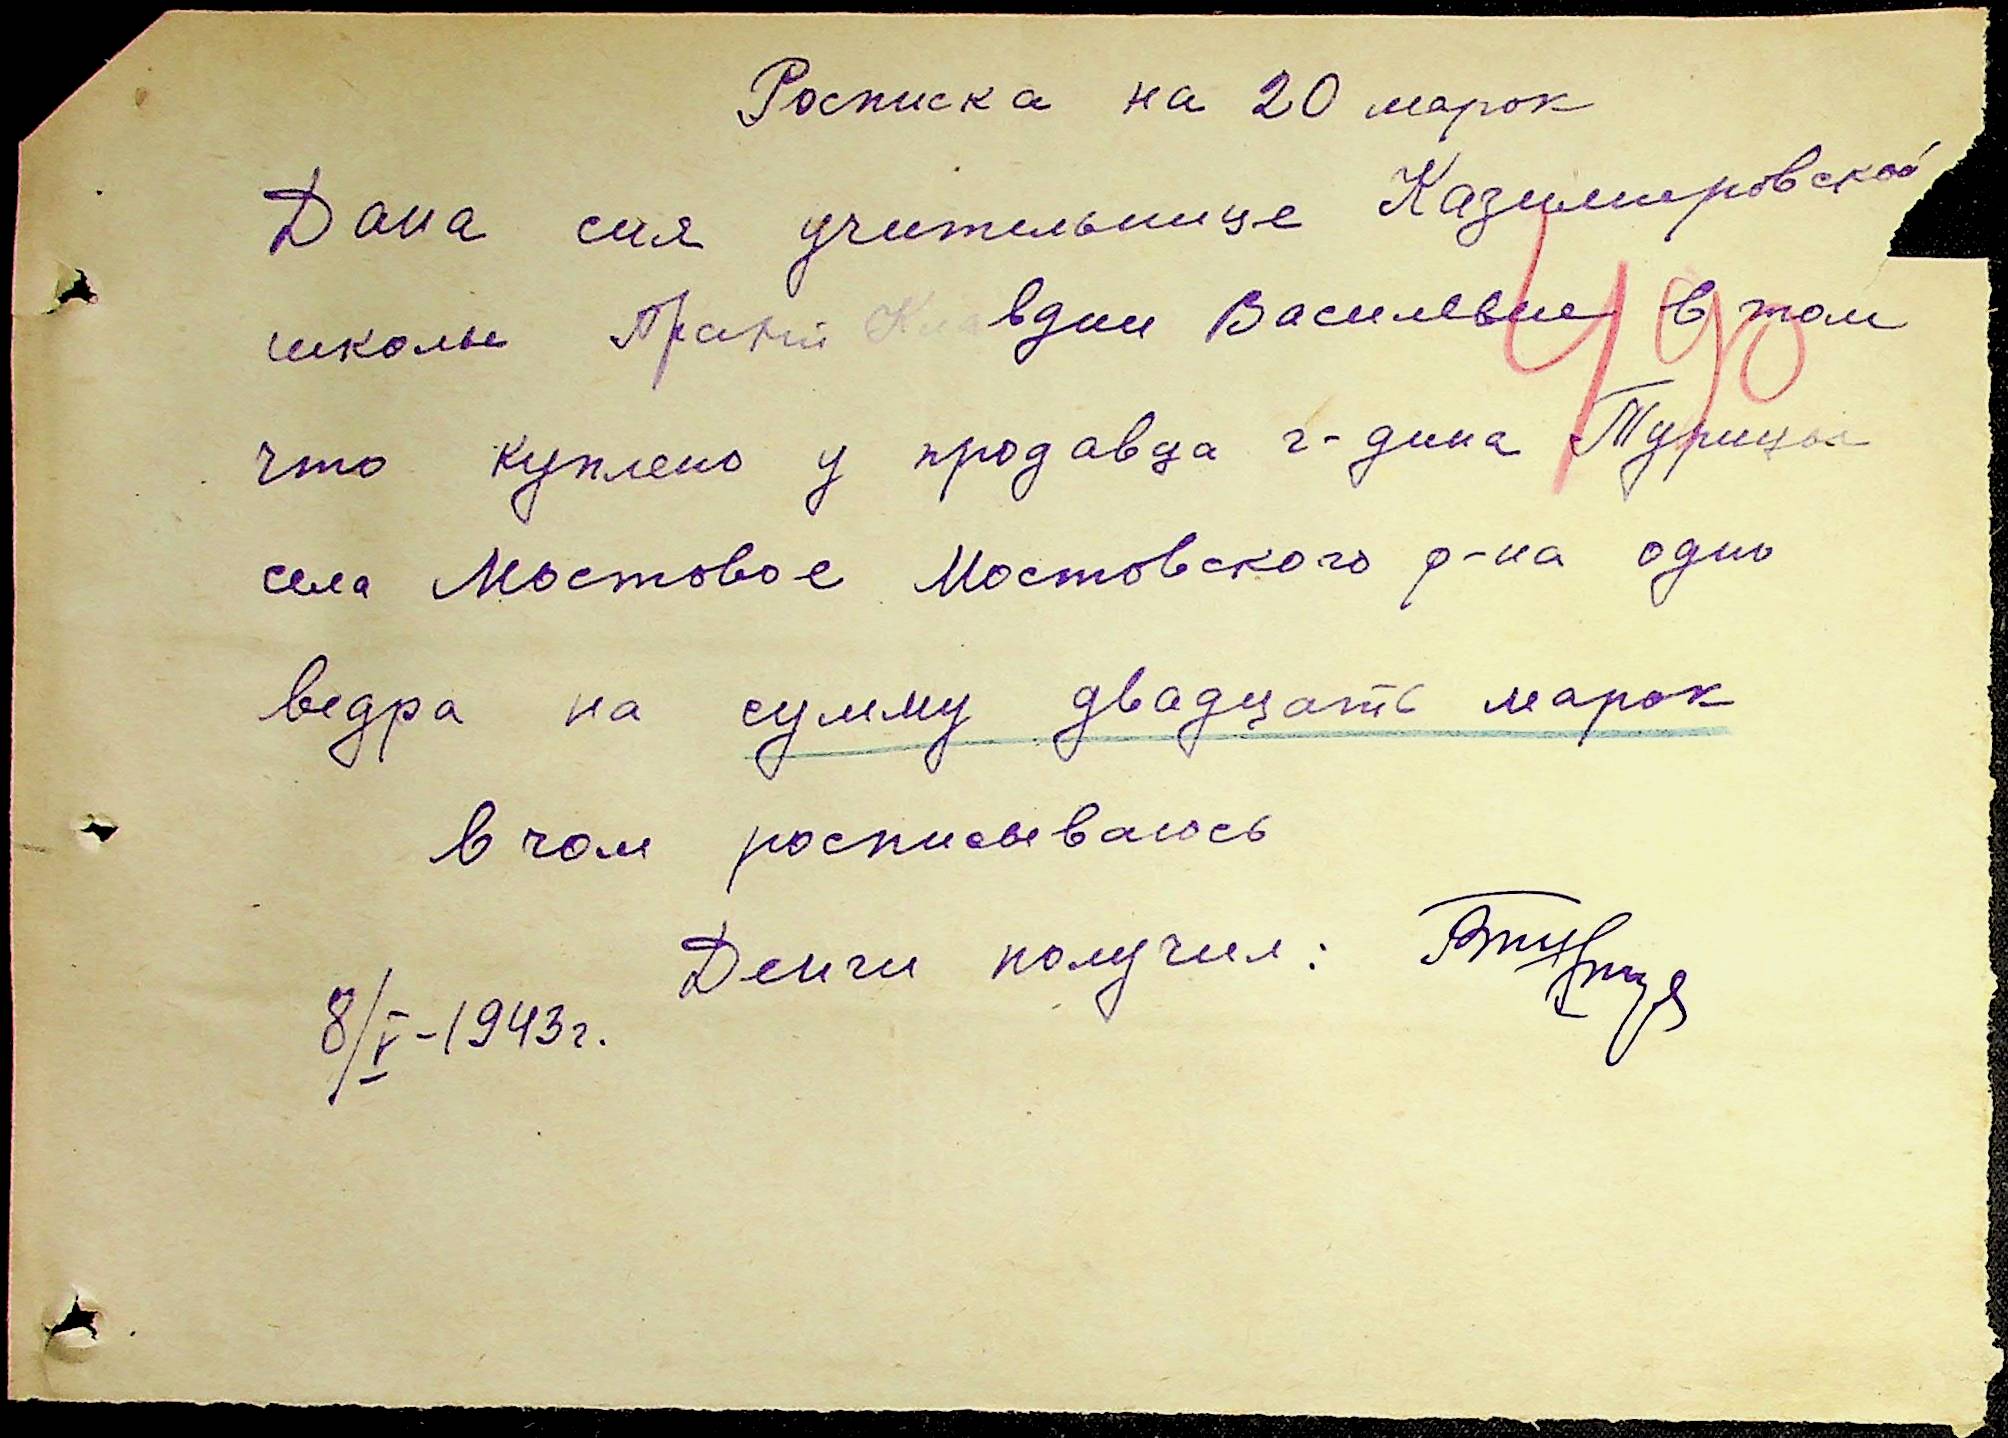 Росписка на 20 марок
Дана сия учительнице Казимировской
школы Клавдии Василевне в том
490
что куплено у продавца г-дина Турицы
села Мостовое Мостовского р-на одно
ведра на сумму двадцать марок
в чом росписываюсь
Денги получил:
8/V-1943г.